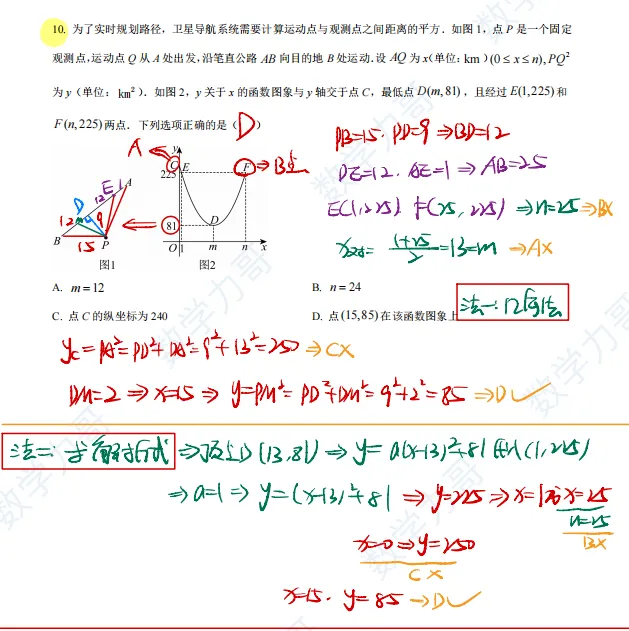 10. 为了实时规划路径，卫星导航系统需要计算运动点与观测点之间距离的平方．如图 1，点 P 是一个固定
观测点，运动点 Q 从 A 处出发，沿笔直公路 AB 向目的地 B 处运动．设 AQ 为 x（单位：km）(0 ≤ x ≤ n), PQ²
为 y（单位：km²）．如图 2，y 关于 x 的函数图象与 y 轴交于点 C，最低点 D(m,81)，且经过 E(1,225) 和
F(n,225) 两点．下列选项正确的是（ D ）
PB=15. PD=9 ⇒BD=12
DE=12. AE=1 ⇒ AB=25
E(1,225) F(25,225) ⇒n=25 ⇒B×
x对= (1+25)/2 =13=m ⇒A×
A
B点
y
C E F
225
81
D
O 1 m n x
图2
D E 1 A
12 12 9
B 15 P
图1
A. m = 12
B. n = 24
C. 点 C 的纵坐标为 240
D. 点 (15,85) 在该函数图象上
法一: 几何法
yc = PA² = PD²+DA² = 9²+13² = 250 ⇒C×
DM=2 ⇒ x=15 ⇒ y=PM² = PD²+DM² = 9²+2² = 85 ⇒D✓
法二: 求解析式 ⇒顶点D(13,81) ⇒ y= a(x-13)²+81 代入(1,225)
⇒a=1 ⇒ y=(x-13)²+81 ⇒ y=225 ⇒ x=1或x=25
n=25
B×
x=0 ⇒y=250
C×
x=15. y=85 ⇒D✓
数学力哥
数学力哥
数学力哥
数学力哥
数学力哥
数学力哥